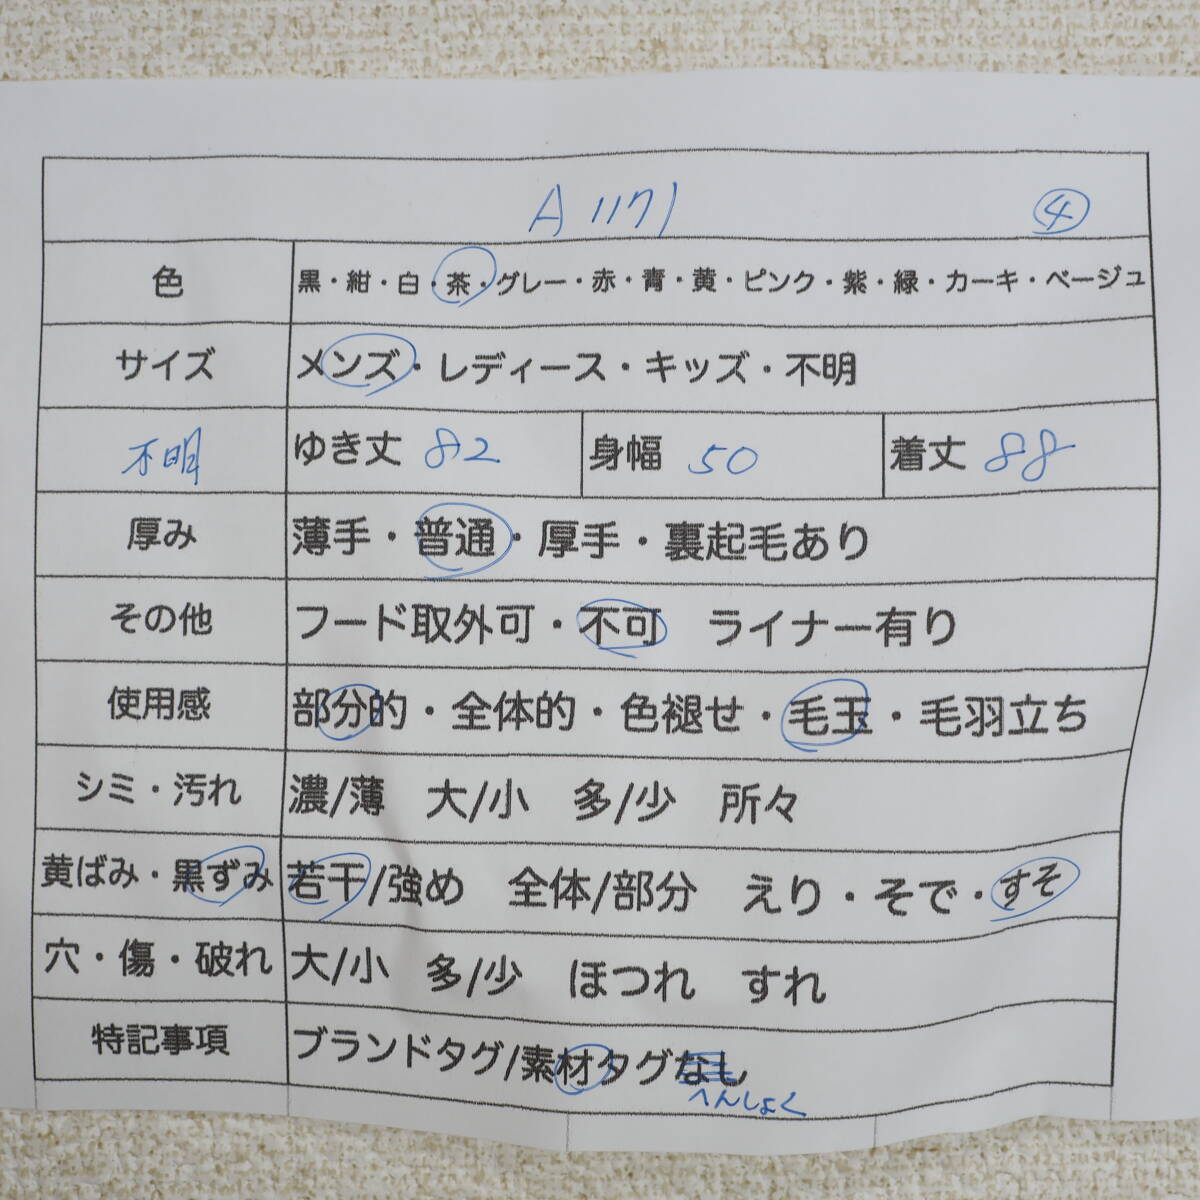 A 1171 ④
色 黒・紺・白・茶・グレー・赤・青・黄・ピンク・紫・緑・カーキ・ベージュ
サイズ メンズ・レディース・キッズ・不明
不明 ゆき丈 82 身幅 50 着丈 88
厚み 薄手・普通・厚手・裏起毛あり
その他 フード取外可・不可 ライナー有り
使用感 部分的・全体的・色褪せ・毛玉・毛羽立ち
シミ・汚れ 濃/薄 大/小 多/少 所々
黄ばみ・黒ずみ 若干/強め 全体/部分 えり・そで・すそ
穴・傷・破れ 大/小 多/少 ほつれ すれ
特記事項 ブランドタグ/素材タグなし
へんしょく